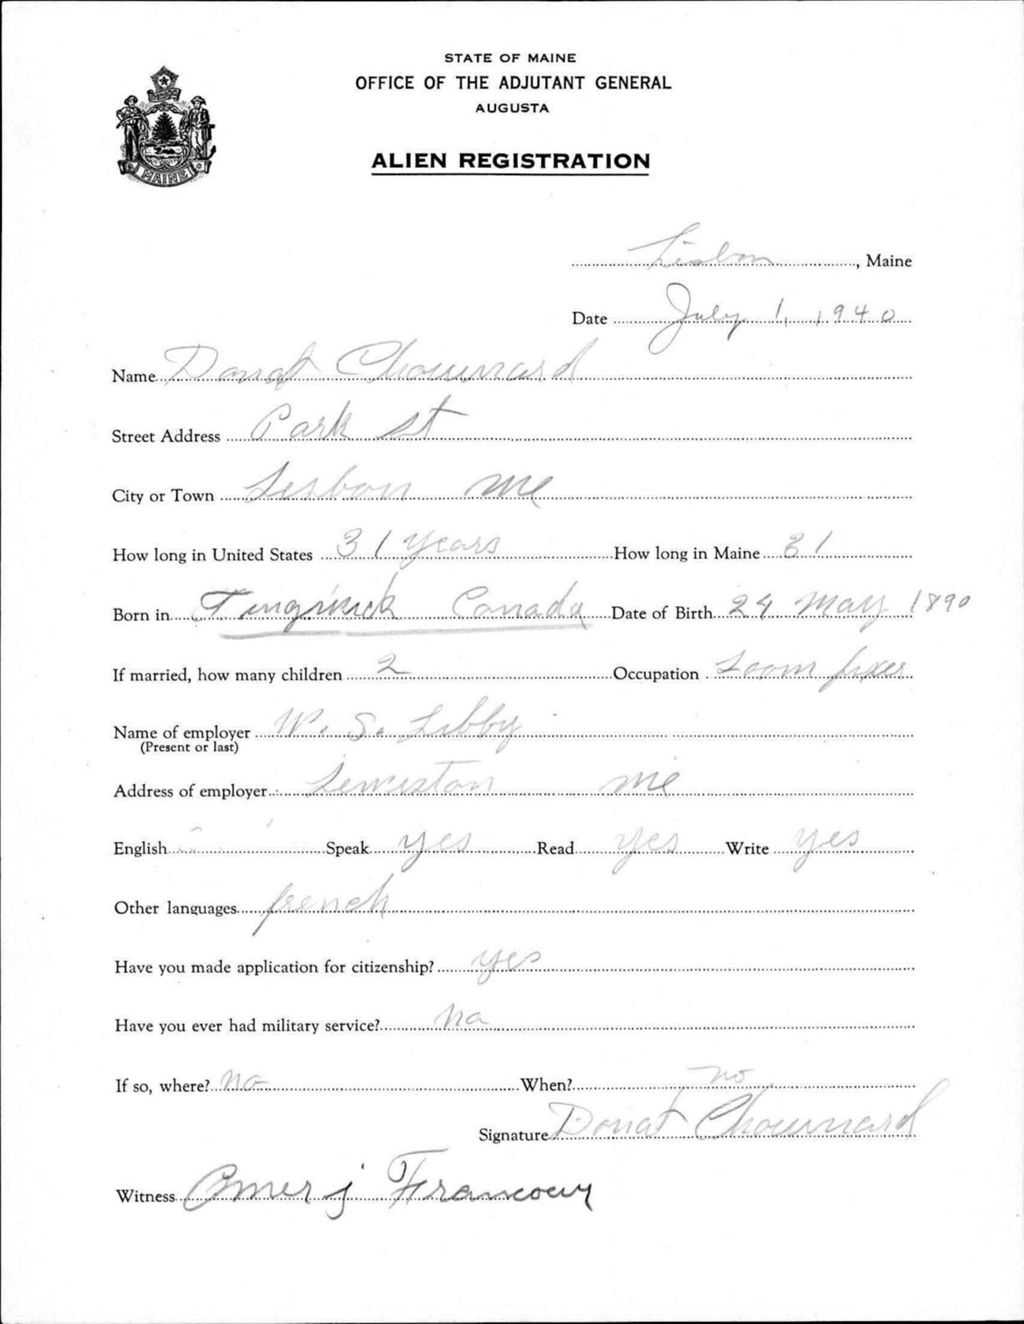 STATE OF MAINE
OFFICE OF THE ADJUTANT GENERAL
AUGUSTA
MAINE
ALIEN REGISTRATION
Lisbon, Maine
Date July 1, 1940
Name Donat Chouinard
Street Address Park St
City or Town Lisbon Me
How long in United States 31 years How long in Maine 31
Born in Tingwick Canada Date of Birth 24 May 1890
If married, how many children 2 Occupation Loom fixer
Name of employer W. S. Libby
(Present or last)
Address of employer Lewiston Me
English Speak yes Read yes Write yes
Other languages french
Have you made application for citizenship? yes
Have you ever had military service? no
If so, where? no When? no
Signature Donat Chouinard
Witness Omer J